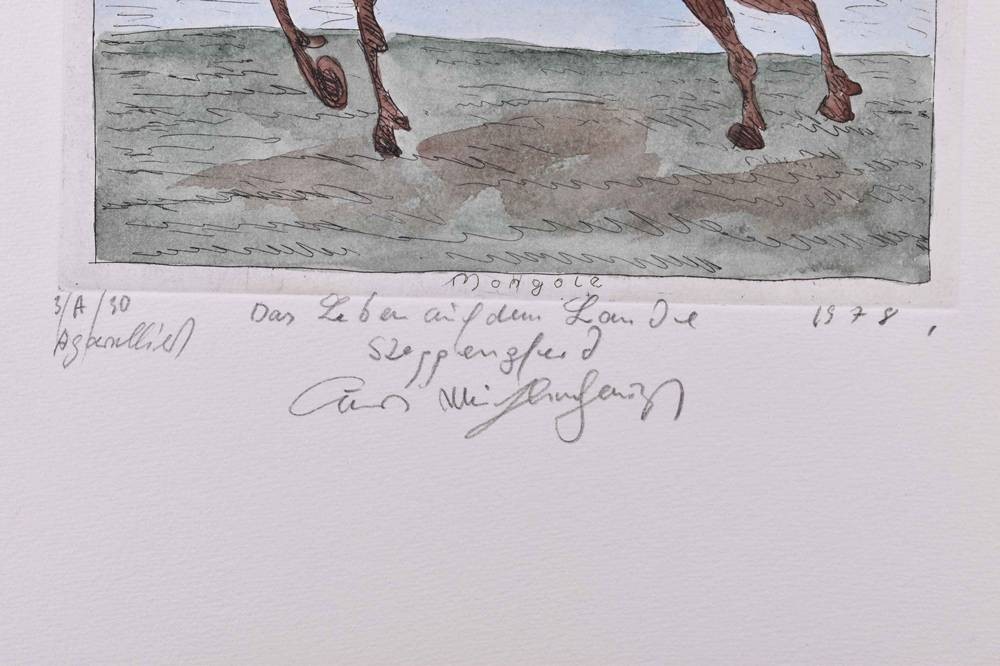 Mongole
3/A/30 Das Leben auf dem Lande 1978,
Aquarelliert Steppenpferd
Curt Mühlenhaupt